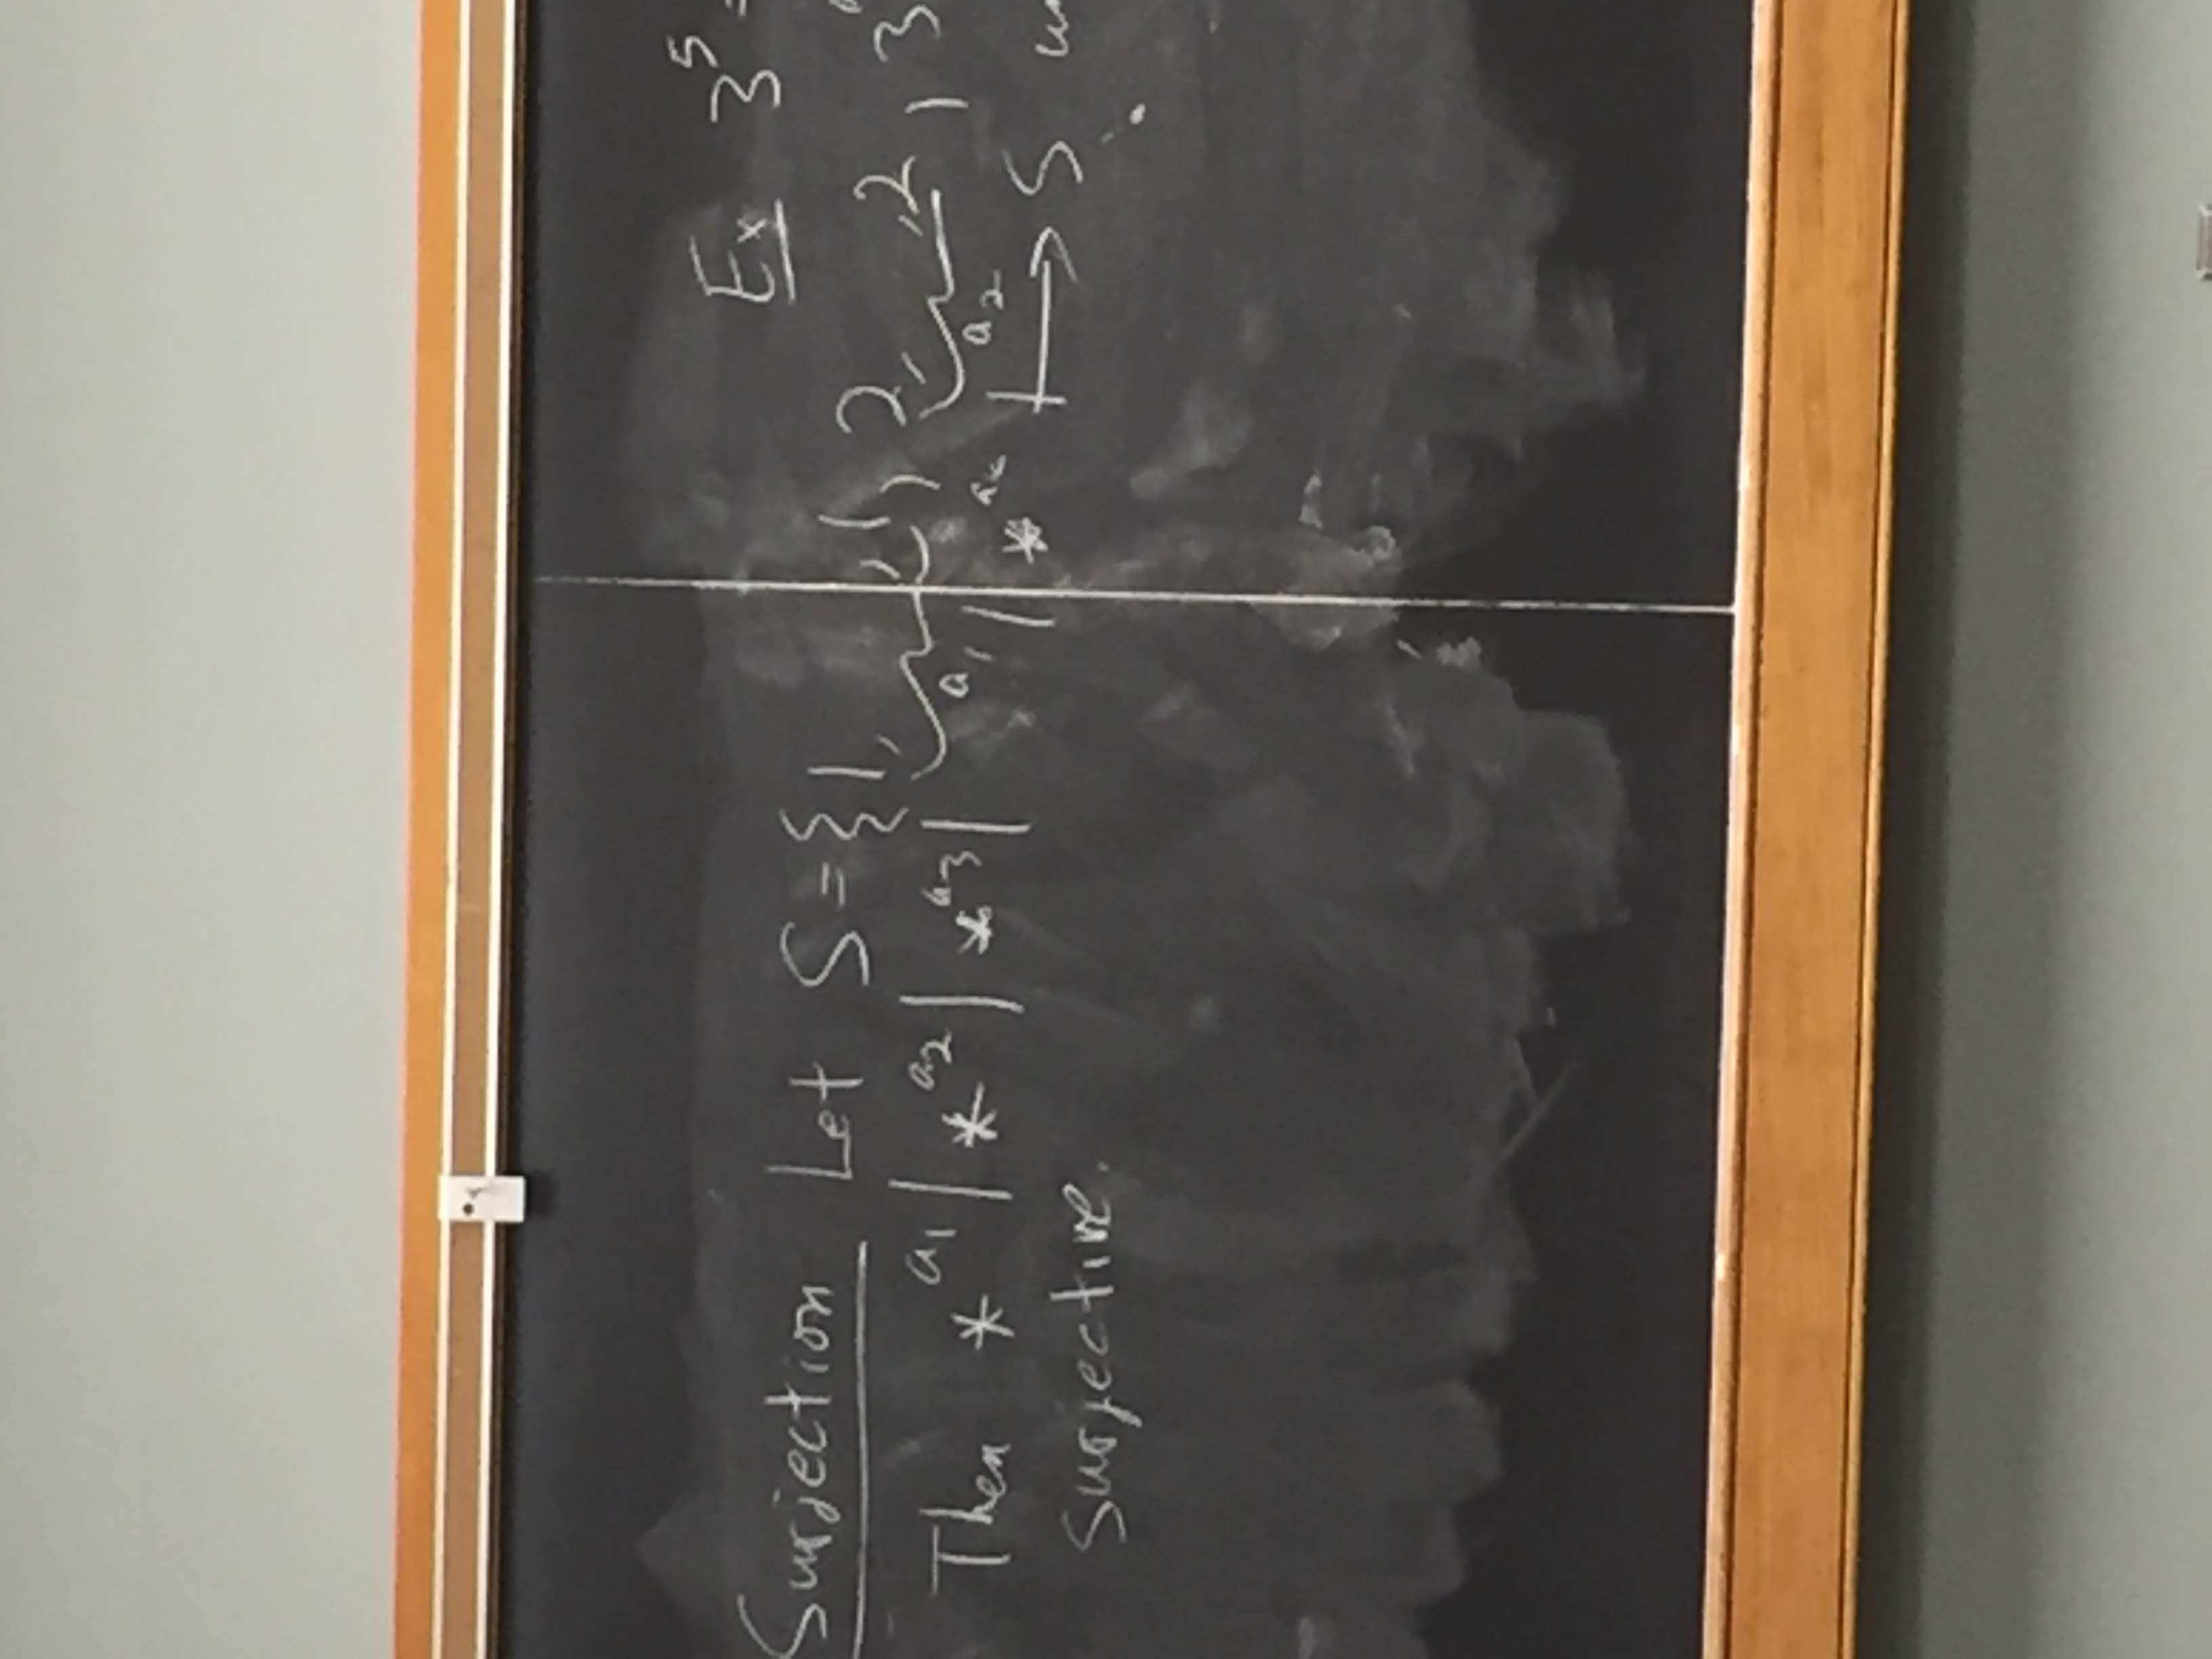 Ex 3^5 =
Surjection Let S = {1, , 1, 2, , 2, 3
a_1 a_2
Then *^{a_1} | *^{a_2} | *^{a_3} | | * ↦ S
surjective.